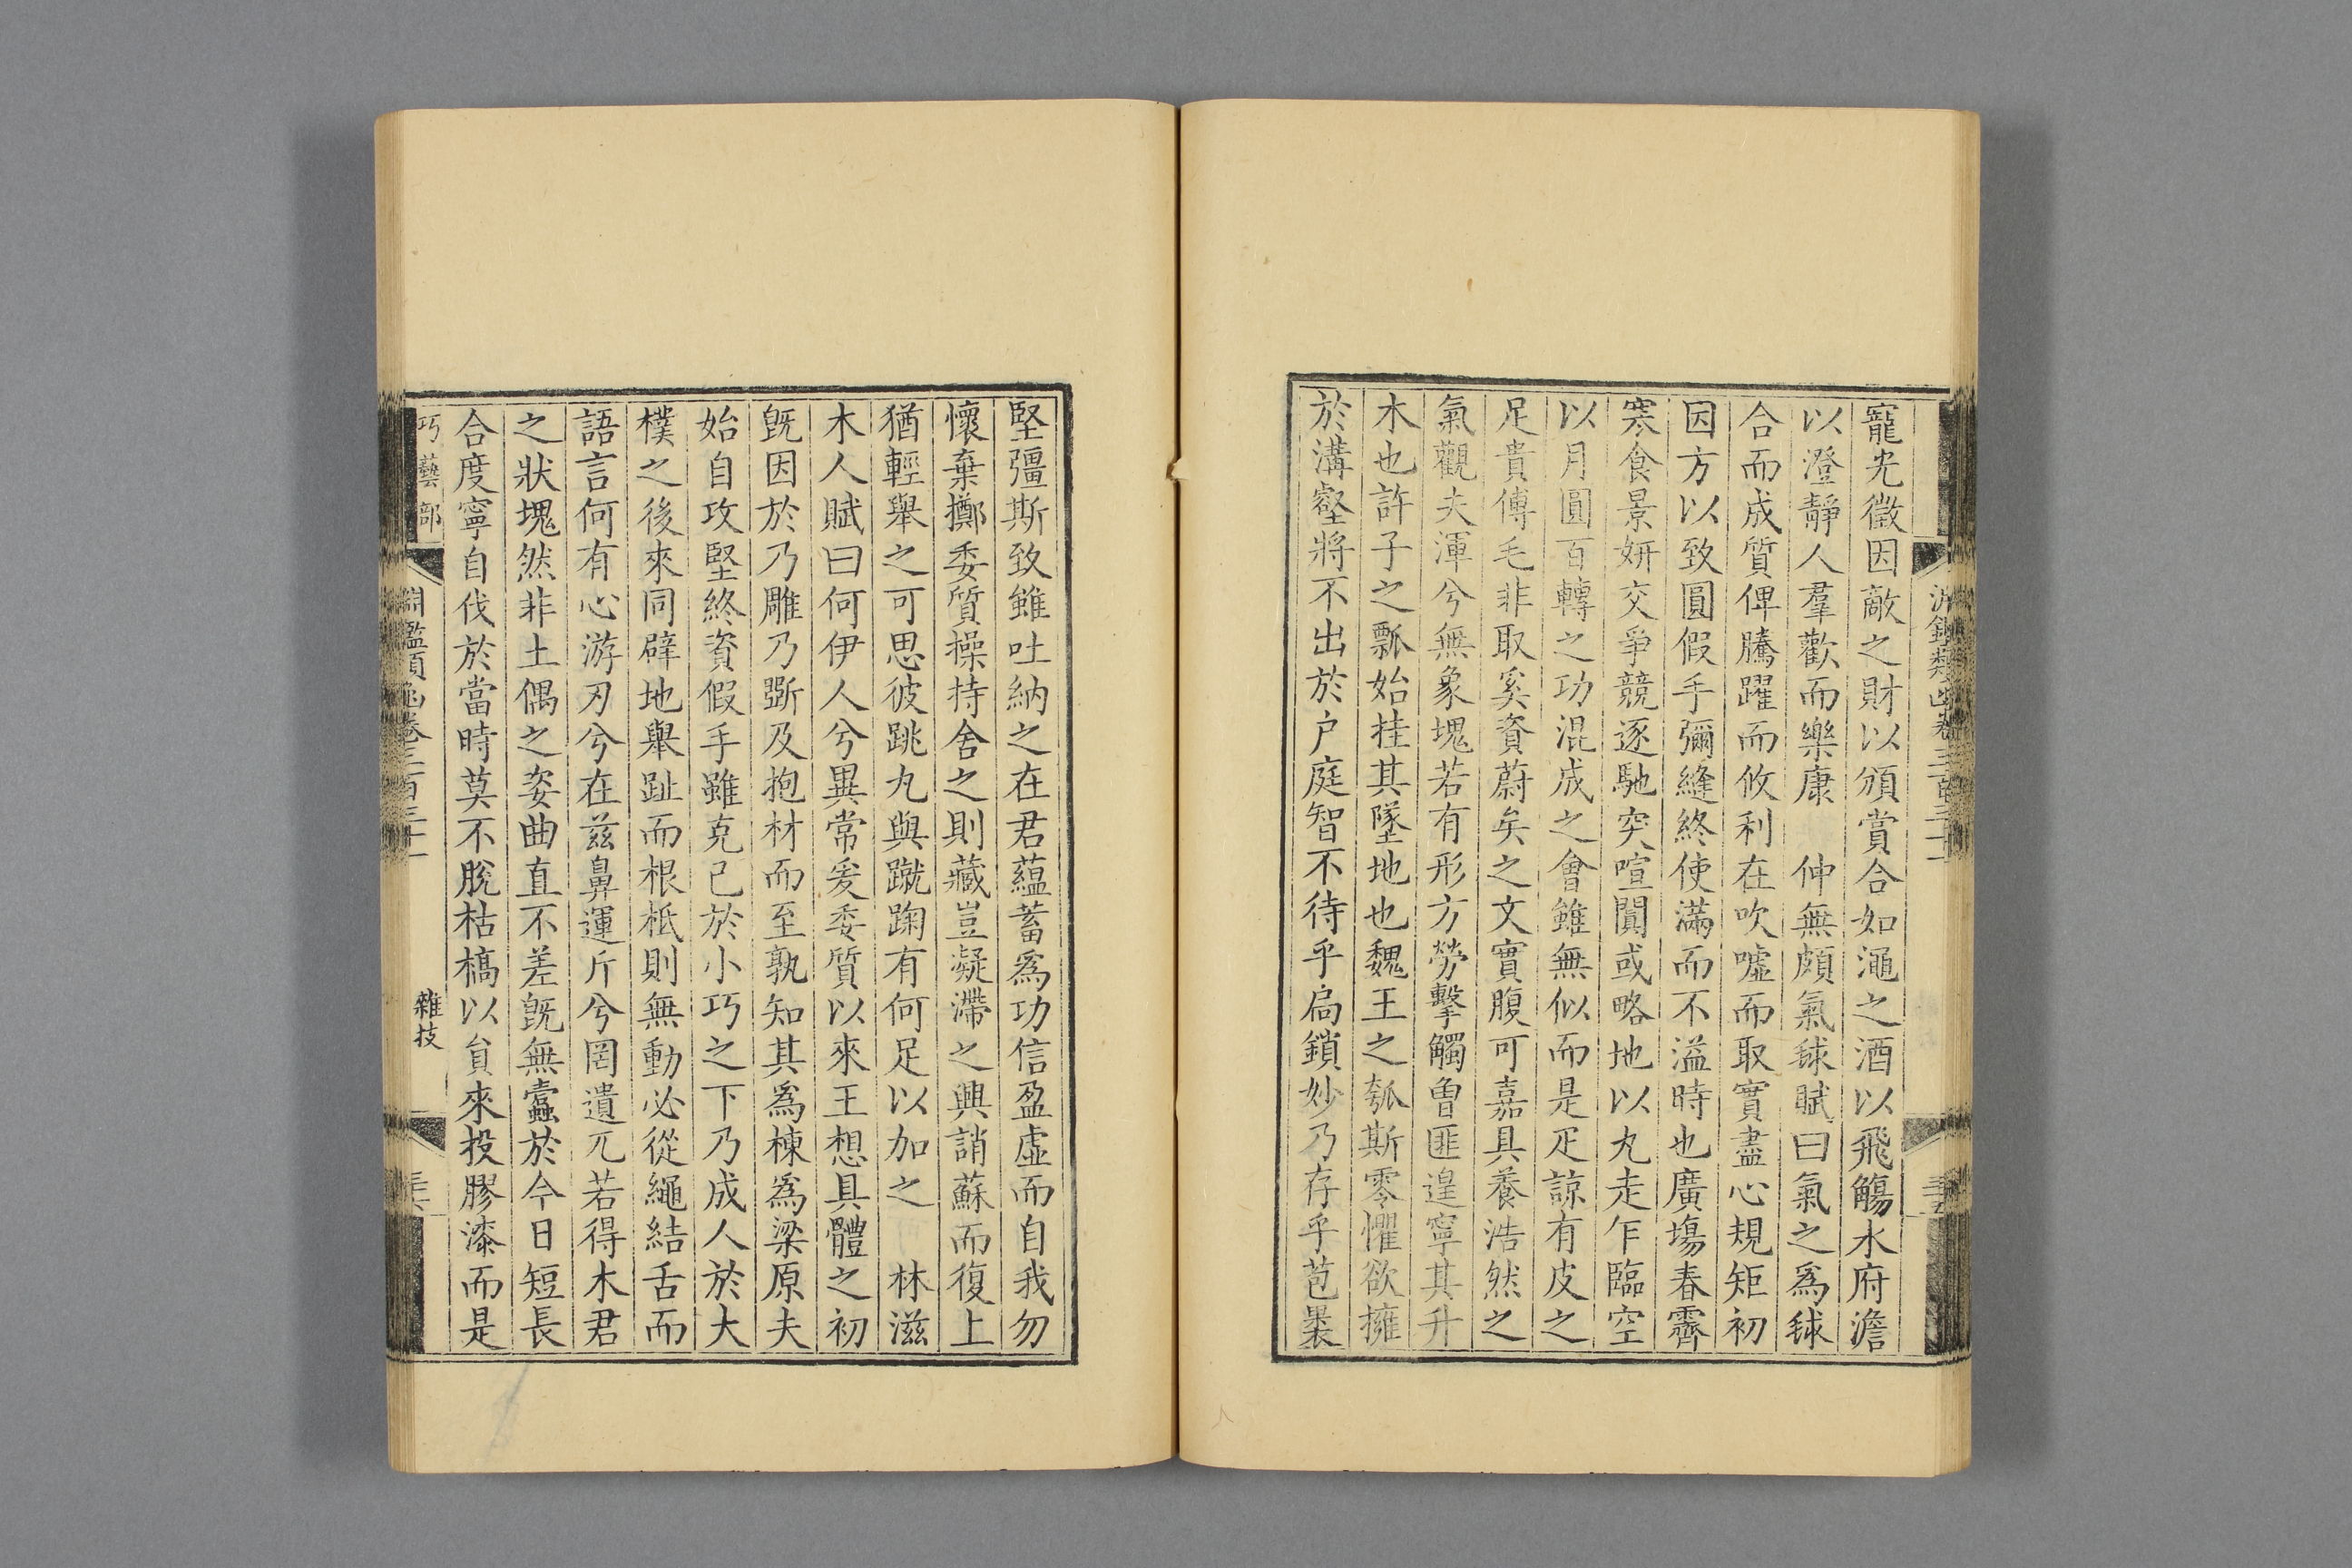 寵光徵因敵之財以頒賞合如澠之酒以飛觴水府澹
以澄靜人羣歡而樂康 仲無頗氣毬賦曰氣之爲毬
合而成質俾騰躍而攸利在吹噓而取實盡心規矩初
因方以致圓假手彌縫終使滿而不溢時也廣場春霽
寒食景妍交爭競逐馳突喧闐或略地以丸走乍臨空
以月圓百轉之功混成之會雖無似而是疋諒有皮之
足貴傳毛非取奚資蔚矣之文實腹可嘉具養浩然之
氣觀夫渾兮無象塊若有形方勞擊觸曾匪遑寧其升
木也許子之瓢始挂其墜地也魏王之瓠斯零懼欲擁
於溝壑將不出於户庭智不待乎扃鎖妙乃存乎苞褁
堅彊斯致雖吐納之在君蘊蓄爲功信盈虛而自我勿
懷棄擲委質操持舍之則藏豈凝滯之興誚蘇而復上
猶輕舉之可思彼跳丸與蹴踘有何足以加之 林滋
木人賦曰何伊人兮異常爰委質以來王想具體之初
旣因於乃雕乃斲及抱材而至孰知其爲棟爲梁原夫
始自攻堅終資假手雖克己於小巧之下乃成人於大
樸之後來同辟地舉趾而根柢則無動必從繩結舌而
語言何有心游刃兮在兹鼻運斤兮罔遺兀若得木君
之狀塊然非土偶之姿曲直不差旣無蠹於今日短長
合度寧自伐於當時莫不脫枯槁以貟來投膠漆而是
巧藝部 淵鑑類函卷三百三十一 雜技 三十六